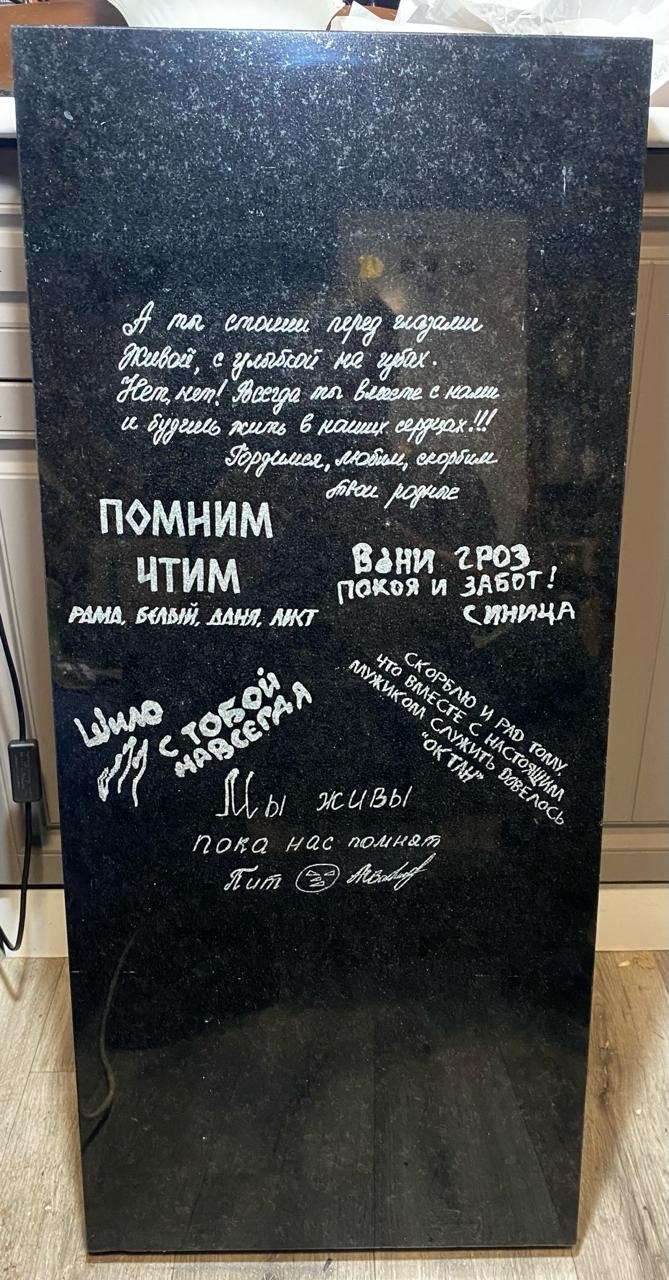 А ты стоишь перед глазами
Живой, с улыбкой на губах.
Нет, нет! Всегда ты вместе с нами
и будешь жить в наших сердцах!!!
Гордимся, любим, скорбим
твои родные
ПОМНИМ
ЧТИМ
РАМА, БЕЛЫЙ, ДАНЯ, ЛИКТ
ВАНИ ГРОЗ
ПОКОЯ И ЗАБОТ!
СИНИЦА
ШИЛО
С ТОБОЙ
НАВСЕГДА
СКОРБЛЮ И РАД ТОМУ,
ЧТО ВМЕСТЕ С НАСТОЯЩИМ
МУЖИКОМ СЛУЖИТЬ ДОВЕЛОСЬ
"ОКТАН"
Мы живы
пока нас помнят
Пит